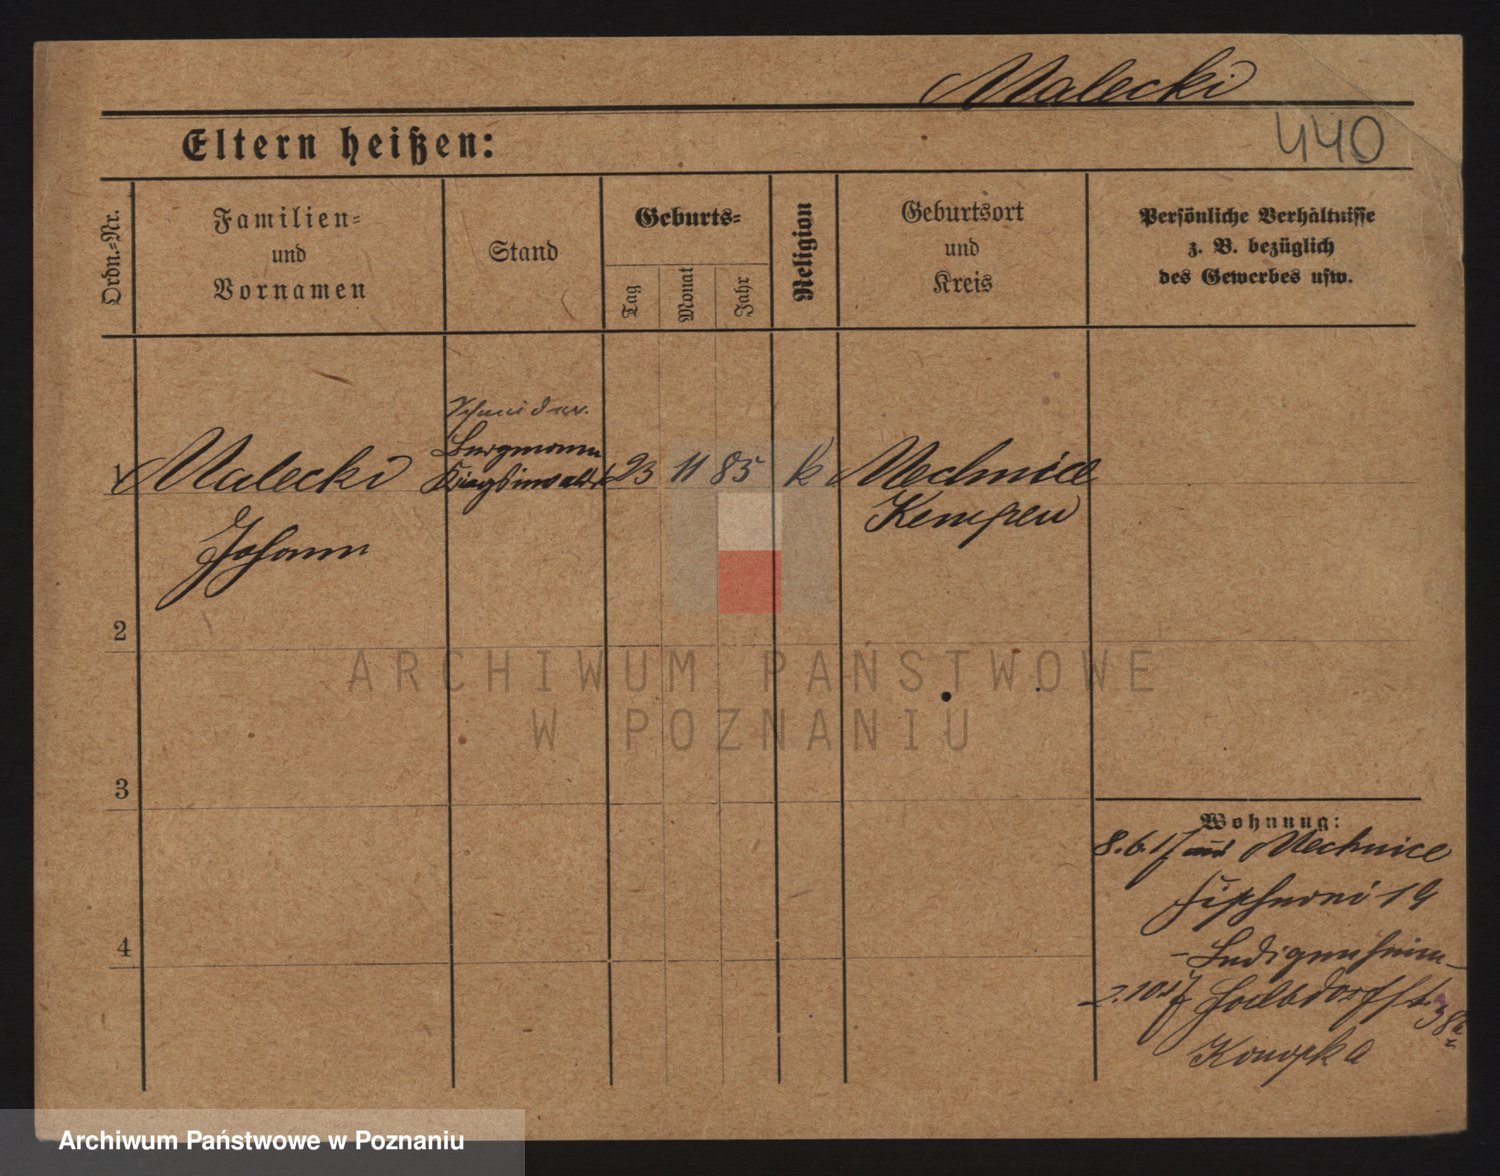 Malecki
Eltern heißen:
440
Ordn.-Nr.
Familien-
und
Vornamen
Stand
Geburts-
Tag
Monat
Jahr
Religion
Geburtsort
und
Kreis
Persönliche Verhältnisse
z. B. bezüglich
des Gewerbes usw.
Schneider.
Bergmann
1 Malecki 23 11 85 k Mechnice
Kempen
Johann
2
ARCHIWUM PAŃSTWOWE
W POZNANIU
3
Wohnung:
8.6.17 aus Mechnice
Fischerei 19
- Ledigenheim -
2.10.17 Halbdorfstr. 38
Konopka
4
Archiwum Państwowe w Poznaniu